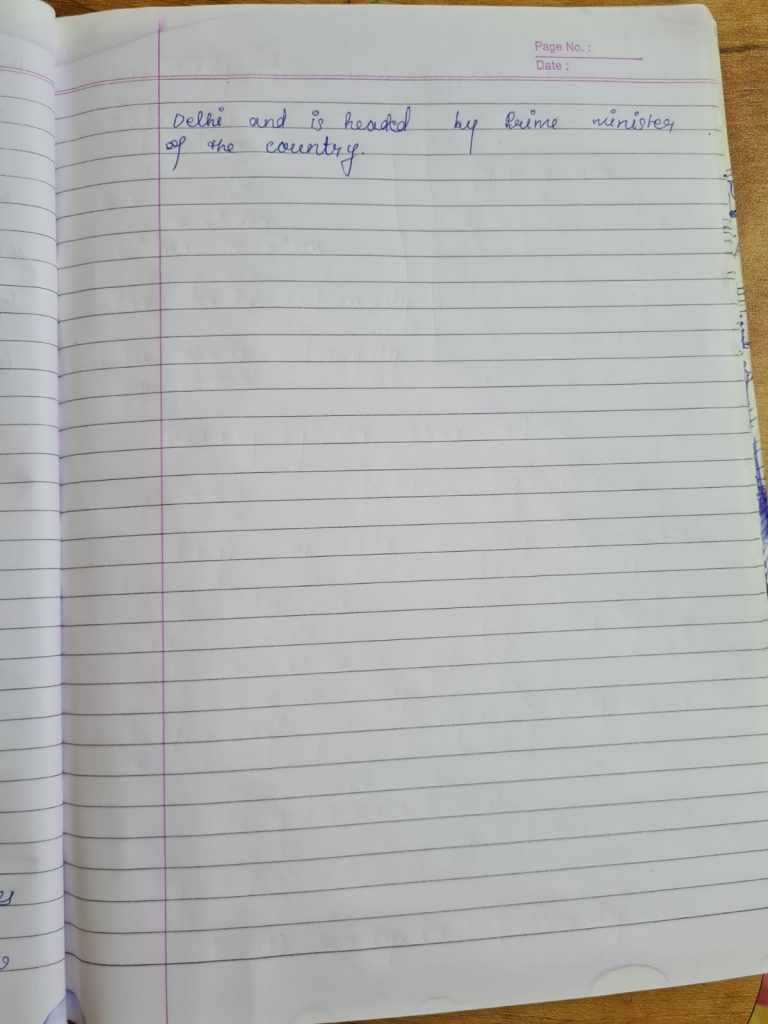 Page No. :
Date :
Delhi and is headed by Prime minister
of the country.